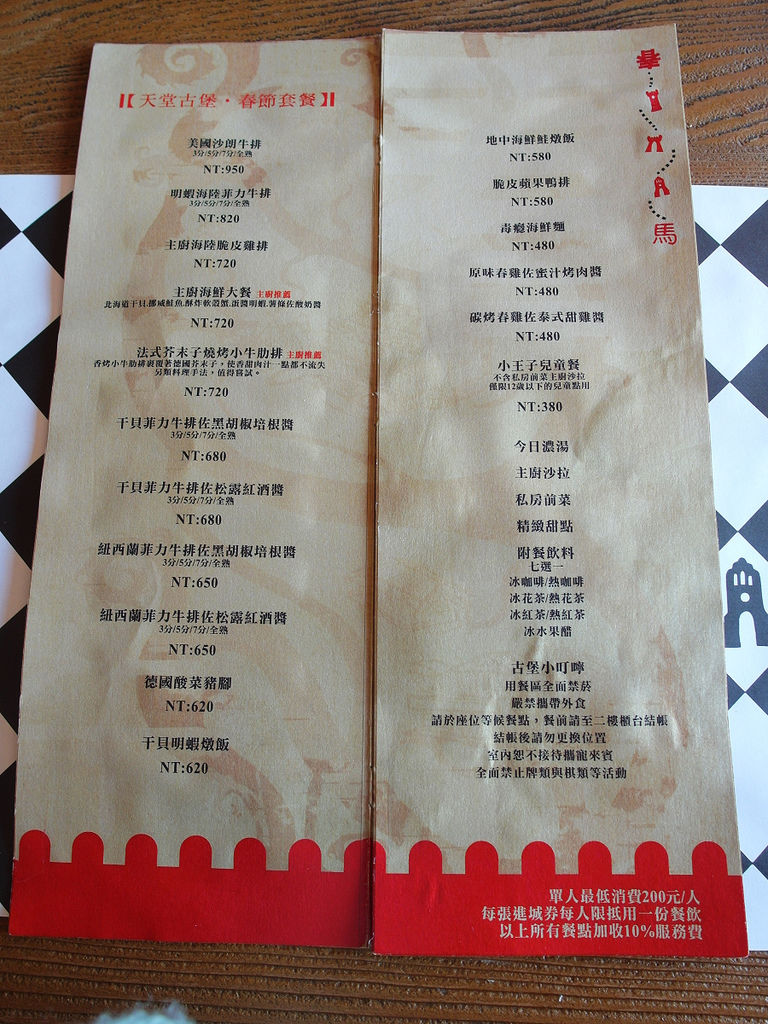 【天堂古堡·春節套餐】
美國沙朗牛排
3分/5分/7分/全熟
NT:950
明蝦海陸菲力牛排
3分/5分/7分/全熟
NT:820
主廚海陸脆皮雞排
NT:720
主廚海鮮大餐 主廚推薦
北海道干貝.挪威鮭魚.酥炸軟殼蟹.蛋醬明蝦.薯條佐酸奶醬
NT:720
法式芥末子燒烤小牛肋排 主廚推薦
香烤小牛肋排裹覆著德國芥末子，使香甜肉汁一點都不流失
另類料理手法，值得嘗試。
NT:720
干貝菲力牛排佐黑胡椒培根醬
3分/5分/7分/全熟
NT:680
干貝菲力牛排佐松露紅酒醬
3分/5分/7分/全熟
NT:680
紐西蘭菲力牛排佐黑胡椒培根醬
3分/5分/7分/全熟
NT:650
紐西蘭菲力牛排佐松露紅酒醬
3分/5分/7分/全熟
NT:650
德國酸菜豬腳
NT:620
干貝明蝦燉飯
NT:620
地中海鮮鮭燉飯
NT:580
脆皮蘋果鴨排
NT:580
毒癮海鮮麵
NT:480
原味春雞佐蜜汁烤肉醬
NT:480
碳烤春雞佐泰式甜雞醬
NT:480
小王子兒童餐
不含私房前菜主廚沙拉
僅限12歲以下的兒童點用
NT:380
今日濃湯
主廚沙拉
私房前菜
精緻甜點
附餐飲料
七選一
冰咖啡/熱咖啡
冰花茶/熱花茶
冰紅茶/熱紅茶
冰水果醋
古堡小叮嚀
用餐區全面禁菸
嚴禁攜帶外食
請於座位等候餐點，餐前請至二樓櫃台結帳
結帳後請勿更換位置
室內恕不接待攜寵來賓
全面禁止牌類與棋類等活動
單人最低消費200元/人
每張進城券每人限抵用一份餐飲
以上所有餐點加收10%服務費
馬